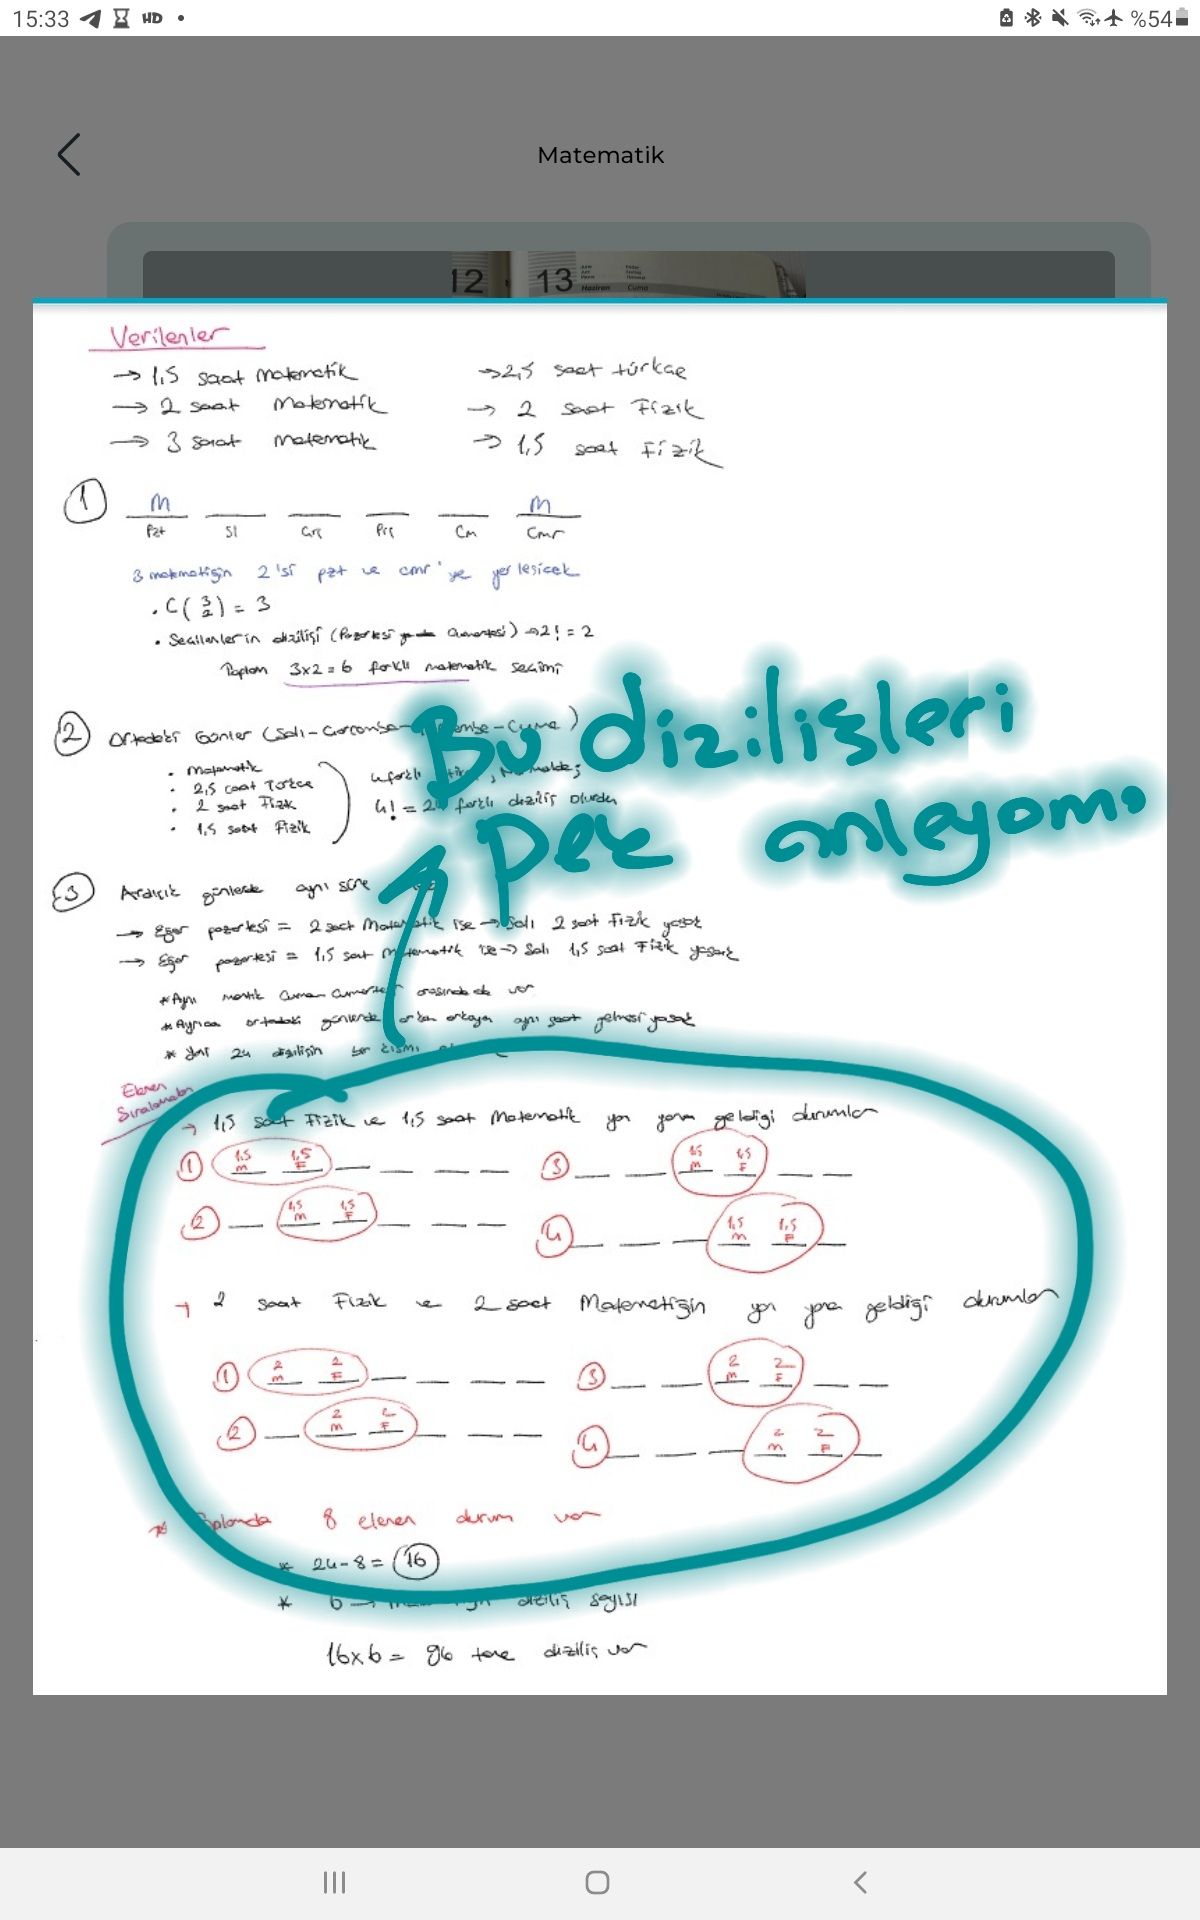 15:33 HD • %54
Matematik
12 13
Haziran Cuma
Verilenler
→ 1,5 saat matematik →2,5 saat türkçe
→ 2 saat Matematik → 2 saat Fizik
→ 3 saat matematik → 1,5 saat Fizik
① M M
Pzt Sl Çrş Prş Cm Cmr
3 matematiğin 2'si pzt ve cmr'ye yerleşicek
• C(3 2) = 3
• Seçilenlerin dizilişi (Pazartesi Cumartesi) → 2! = 2
Toplam 3x2=6 farklı matematik seçimi
② Ortadaki Günler (Salı-Çarşamba- -Cuma)
• Matematik
• 2,5 saat Türkçe
• 2 saat Fizik
• 1,5 saat Fizik
4 farklı
4! = 24 farklı diziliş olurdu
Bu dizilişleri
pek anlayom.
③ Ardışık günlerde aynı süre
→ Eğer pazartesi = 2 saat Matematik ise → Salı 2 saat Fizik yasak
→ Eğer pazartesi = 1,5 saat Matematik ise → Salı 1,5 saat Fizik yasak
* Aynı mantık Cuma-Cumartesi arasında da var
* Ayrıca ortadaki günlerde arka arkaya aynı saat gelmesi yasak
* Yani 24 dizilişin bir kısmı
Elenen
Sıralamalar
→ 1,5 saat Fizik ve 1,5 saat Matematik yan yana geldiği durumlar
① 1,5 M 1,5 F ③ 1,5 M 1,5 F
② 1,5 M 1,5 F ④ 1,5 M 1,5 F
→ 2 saat Fizik ve 2 saat Matematiğin yan yana geldiği durumlar
① 2 M 2 F ③ 2 M 2 F
② 2 M 2 F ④ 2 M 2 F
* Toplamda 8 elenen durum var
* 24-8 = 16
* 6 → diziliş sayısı
16x6 = 96 tane diziliş var